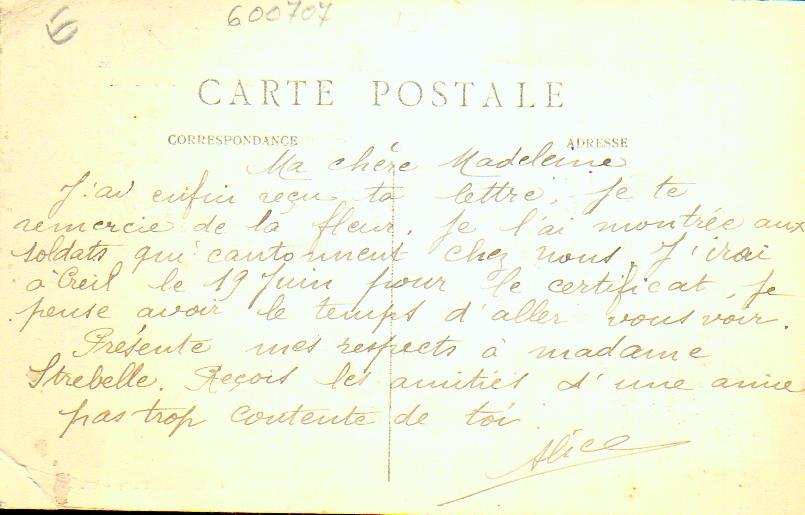 6
600707
CARTE POSTALE
CORRESPONDANCE
ADRESSE
Ma chère Madeleine
J'ai enfin reçu ta lettre, je te
remercie de la fleur. Je l'ai montrée aux
soldats qui cantonnent chez nous. J'irai
à Creil le 19 Juin pour le certificat, je
pense avoir le temps d'aller vous voir.
Présente mes respects à madame
Strebelle. Reçois les amitiés d'une amie
pas trop contente de toi
Alice